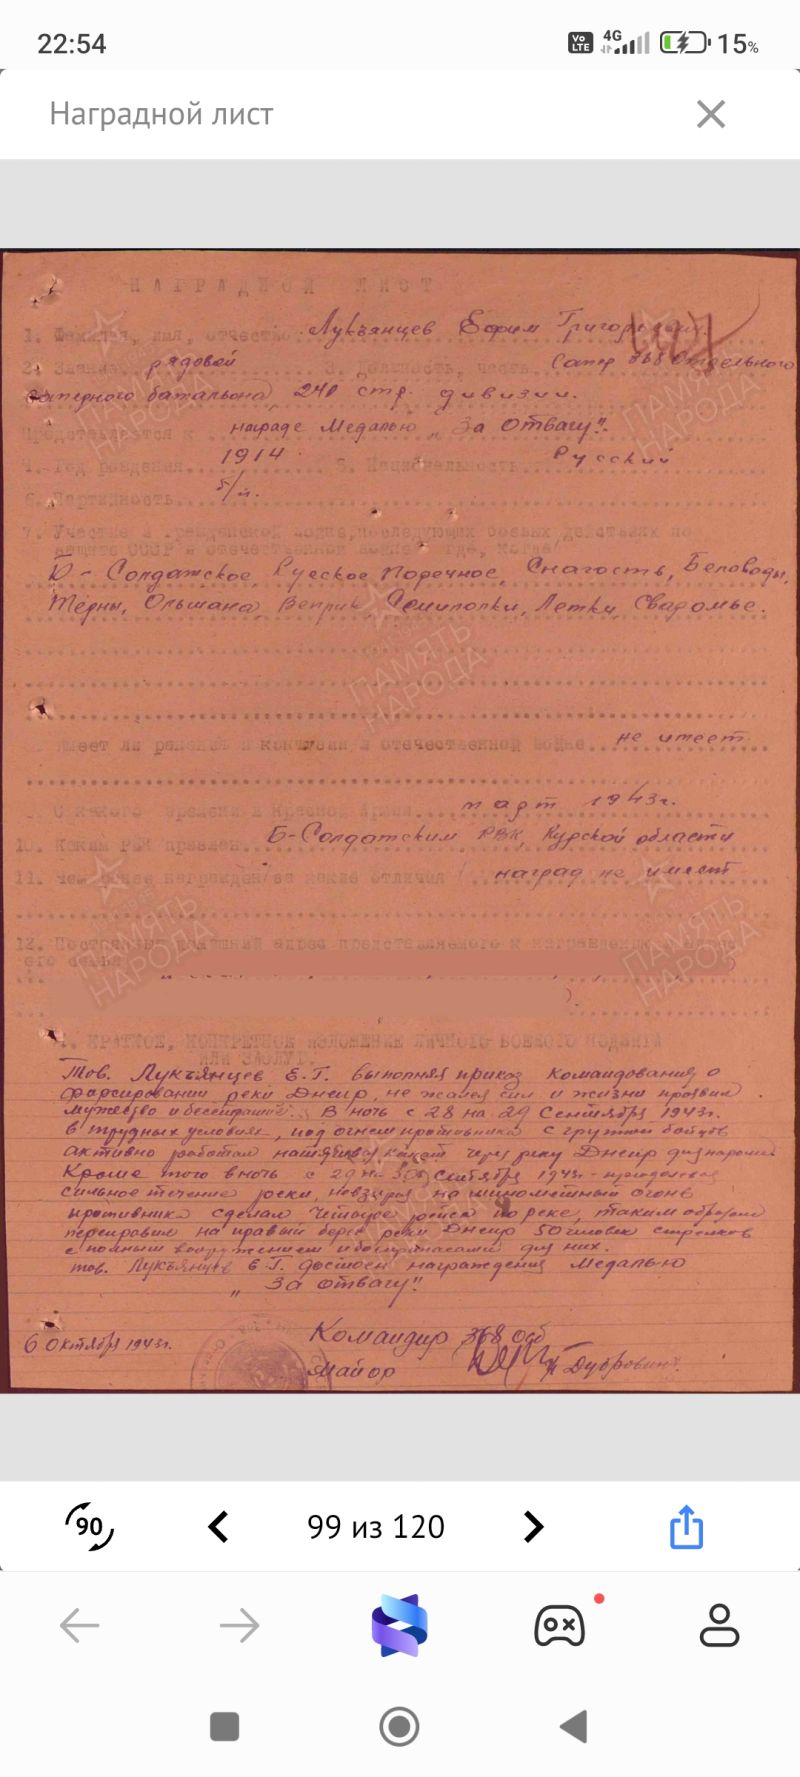 22:54
Vo LTE 4G 15%
Наградной лист
НАГРАДНОЙ ЛИСТ
1. Фамилия, имя, отчество Лукъянцев Ефим Григорьевич
2. Звание рядовой 3. Должность, часть Сапер 368 Отдельного
саперного батальона, 240 стр. дивизии.
Представляется к награде Медалью „За Отвагу".
4. Год рождения 1914. 5. Национальность Русский
6. Партийность б/п.
7. Участие в гражданской войне, последующих боевых действиях по
защите СССР и отечественной войне где, когда
Б-Солдатское, Русское Поречное, Снагость, Беловоды,
Терны, Ольшана, Веприк, Семиполки, Летки, Сваромье.
Имеет ли ранения и контузии в отечественной войне не имеет
С какого времени в Красной Армии март 1943г.
10. Каким РВК призван Б-Солдатским РВК, Курской области
11. Чем ранее награжден за какие отличия наград не имеет
12. Постоянный домашний адрес представляемого к награждению и адрес
его семьи
КРАТКОЕ, КОНКРЕТНОЕ ИЗЛОЖЕНИЕ ЛИЧНОГО БОЕВОГО ПОДВИГА
ИЛИ ЗАСЛУГ.
Тов. Лукъянцев Е.Г. выполняя приказ командования о
форсировании реки Днепр, не жалея сил и жизни проявил
мужество и бесстрашие. В ночь с 28 на 29 Сентября 1943г.
в трудных условиях, под огнем противника с группой бойцов
активно работал через реку Днепр
Кроме того в ночь с 29 на 30 Сентября 1943г. преодолевая
сильное течение реки, невзирая на минометный огонь
противника сделал четыре рейса по реке, таким образом
переправил на правый берег реки Днепр 50 человек стрелков
с полным вооружением и боеприпасами для них.
тов. Лукъянцев Е.Г. достоин награждения Медалью
„За отвагу"
6 Октября 1943г.
Командир 368 осб
майор Дубровин
ПАМЯТЬ НАРОДА
90
99 из 120